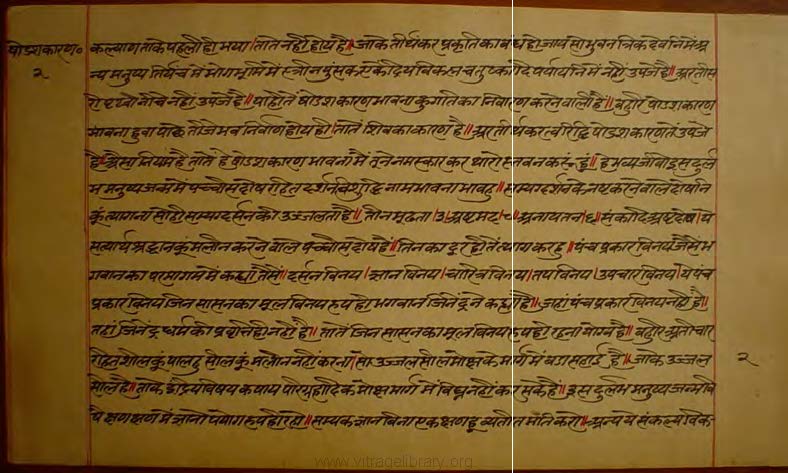 षोडशकारण० कल्याण ताके पहली ही भया।तातैं नही होय है॥जाके तीर्थंकर प्रकृति का बंध हो जाय सो भुवनत्रिक देवनिमें अ
२ न्य मनुष्य तिर्यंच में भोगभूमि में स्त्री नपुंसक एकेंद्रिय विकल चतुष्कादि पर्यायनि में नहीं उपजे है॥अर तीस
री पृथ्वी नीचे नहीं उपजे है॥याही तें षोडशकारण भावना कुगति का निवारण करने वाली है॥बहुरि षोडशकारण
भावना हुवा पाछे तीजे भव निर्वाण होय ही।तातें शिव का कारण है॥अर तीर्थंकरत्व रिद्धि षोडशकारण तें उपजे
है॥ऐसा नियम है तातें हे षोडशकारण भावना मैं तूने नमस्कार कर थारो स्तवन करूं हूं॥हे भव्य जीवो इस दुर्ल
भ मनुष्य जन्म में पच्चीस दोष रहित दर्शन विशुद्धि नाम भावना भावहु॥सम्यग्दर्शन के नष्ट करने वाले दोषनि
कूं त्यागना सोही सम्यग्दर्सन की उज्जलता है॥तीन मूढता।३।अष्ट मद।८।अनायतन।६।संकादि अष्ट दोष।ये
सत्यार्थ श्रद्धान कूं मलीन करने वाले पच्चीस दोष हैं॥तिनका दूर ही तें त्याग करहु॥पंच प्रकार विनय जैसें भ
गवान का परमागम में कह्या तैसें॥दर्सन विनय।ज्ञान विनय।चारित्र विनय।तप विनय।उपचार विनय।ये पंच
प्रकार विनय जिन सासन का मूल विनय रूप ही भगवान जिनेंद्र ने कह्या है॥जहां पंच प्रकार विनय नहीं है॥
तहां जिनेंद्र धर्म की प्रवृत्ति ही नहीं है॥तातें जिन सासन का मूल विनय रूप ही रहना योग्य है॥बहुरि अतीचार
रहित शील कूं पालहु सील कूं मलीन नहीं करना।सो उज्जल सील मोक्ष के मार्ग में बडा सहाई है॥जाके उज्जल २
सील है॥ताके इंद्रिय विषय कषाय परिग्रहादिक मोक्ष मार्ग में विघ्न नहीं कर सके है॥इस दुर्लभ मनुष्य जन्म वि
षे क्षण क्षण में ज्ञानोपयोग रूप ही रहो॥सम्यक ज्ञान बिना एक क्षण हू व्यतीत मति करो॥अन्य ये संकल्प विक-
www.vitragelibrary.org